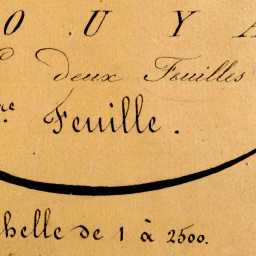 O U Y A
deux Feuilles
re Feuille.
chelle de 1 à 2500.